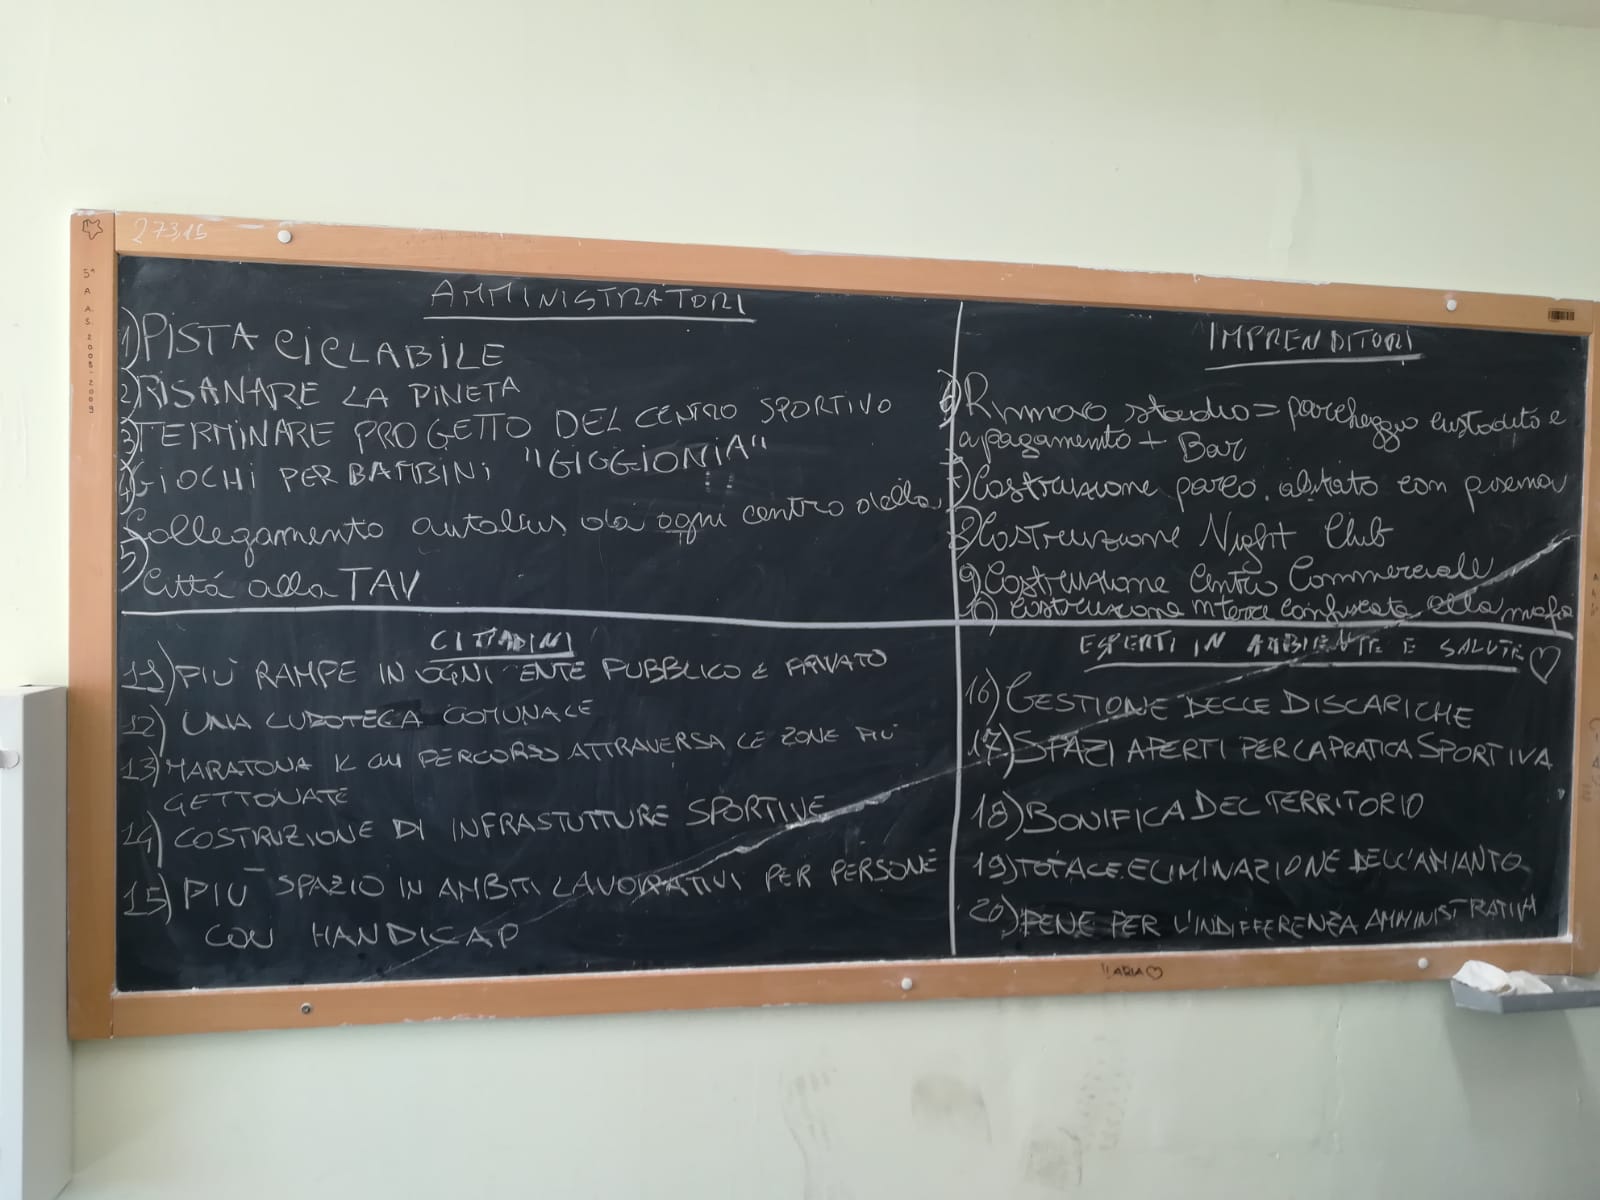 273,15
5ª A A.S. 2008-2009
AMMINISTRATORI
1) PISTA CICLABILE
2) RISANARE LA PINETA
3) TERMINARE PROGETTO DEL CENTRO SPORTIVO
4) GIOCHI PER BAMBINI "GIGGIONIA"
Collegamento autobus da ogni centro della
5) Città alla TAV
IMPRENDITORI
6) Rinnovo stadio = parcheggio custodito e
a pagamento + Bar
7) Costruzione parco
8) Costruzione Night Club
9) Costruzione Centro Commerciale
10) Costruzione confiscata alla mafia
CITTADINI
11) PIÙ RAMPE IN OGNI ENTE PUBBLICO E PRIVATO
12) UNA LUDOTECA COMUNALE
13) MARATONA PERCORSO ATTRAVERSA LE ZONE PIÙ
GETTONATE
14) COSTRUZIONE DI INFRASTUTTURE SPORTIVE
15) PIÙ SPAZIO IN AMBITI LAVORATIVI PER PERSONE
CON HANDICAP
ESPERTI IN AMBIENTE E SALUTE
16) GESTIONE DELLE DISCARICHE
17) SPAZI APERTI PER LA PRATICA SPORTIVA
18) BONIFICA DEL TERRITORIO
19) TOTALE ELIMINAZIONE DELL'AMIANTO
20) PENE PER L'INDIFFERENZA AMMINISTRATIVA
ILARIA